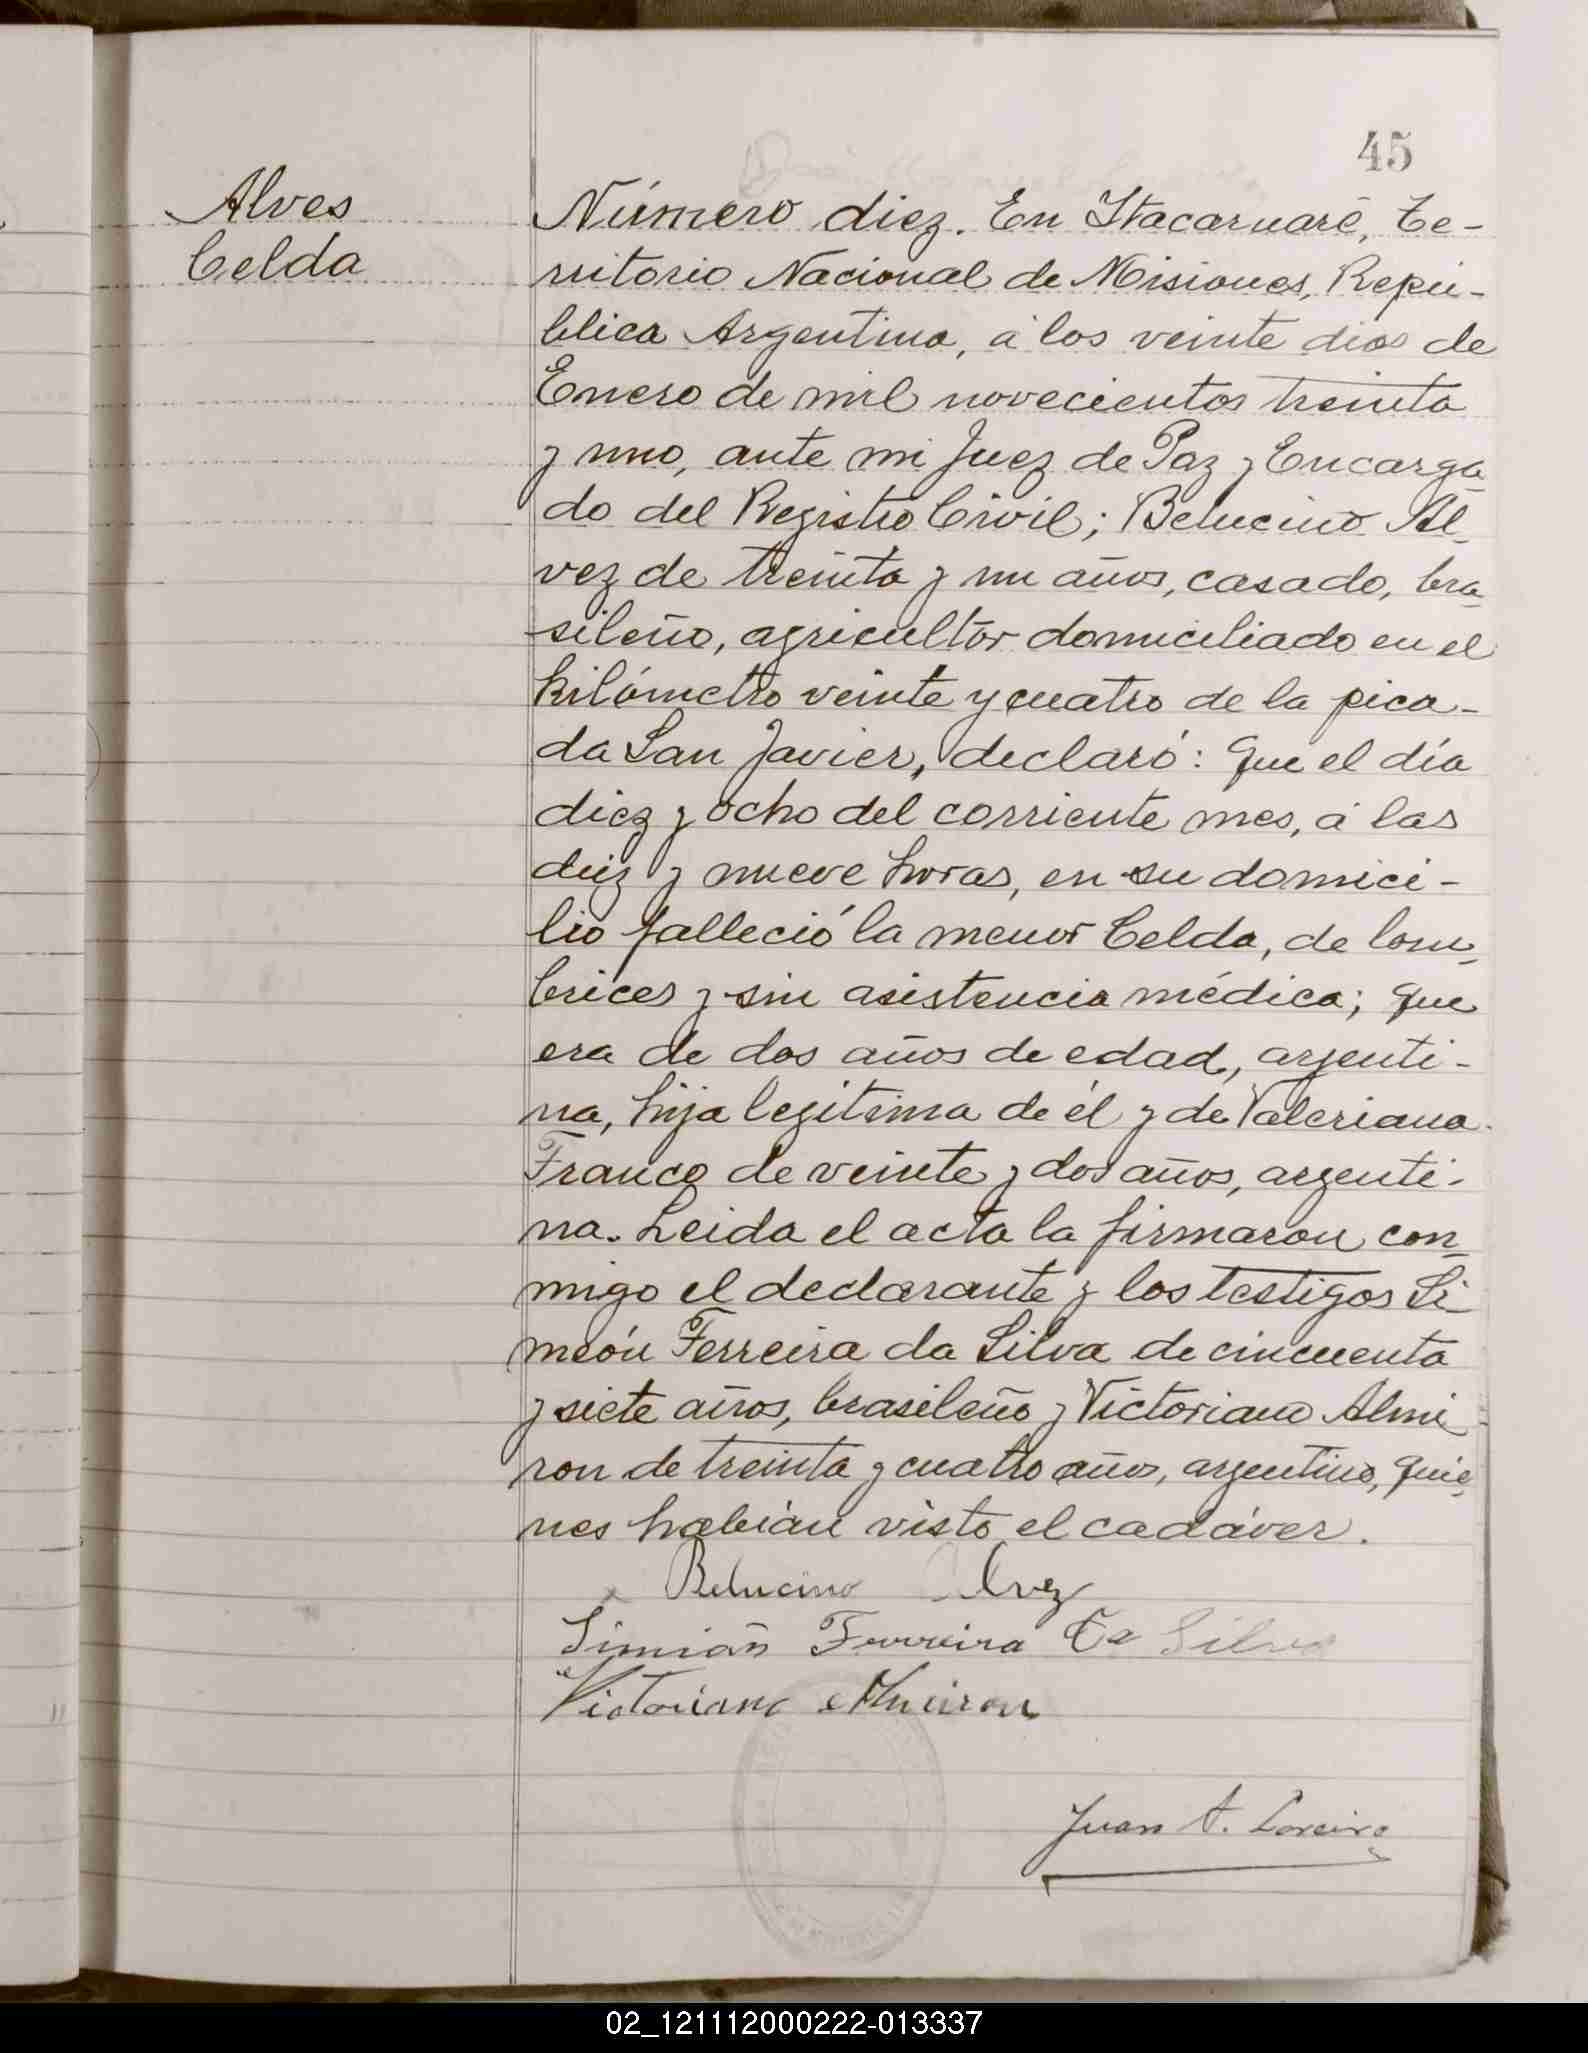 45
Alves
Celda
Número diez. En Itacaruaré, Te-
rritorio Nacional de Misiones, Repú-
blica Argentina, á los veinte dias de
Enero de mil novecientos treinta
y uno, ante mi Juez de Paz y Encarga
do del Registro Civil; Belucino Al-
vez de treinta y un años, casado, bra-
sileño, agricultor domiciliado en el
kilómetro veinte y cuatro de la pica-
da San Javier, declaró: Que el día
diez y ocho del corriente mes, á las
diez y nueve horas, en su domici-
lio falleció la menor Celda, de lom-
brices y sin asistencia médica; que
era de dos años de edad, argenti-
na, hija legitima de él y de Valeriana
Franco de veinte y dos años, argenti-
na. Leida el acta la firmaron con-
migo el declarante y los testigos Si
meón Ferreira da Silva de cincuenta
y siete años, brasileño y Victoriano Almi
ron de treinta y cuatro años, argentino, quie-
nes habían visto el cadáver.
Belucino Alvez
Simián Ferreira Da Silva
Victoriano Almiron
Juan A.
02_121112000222-013337